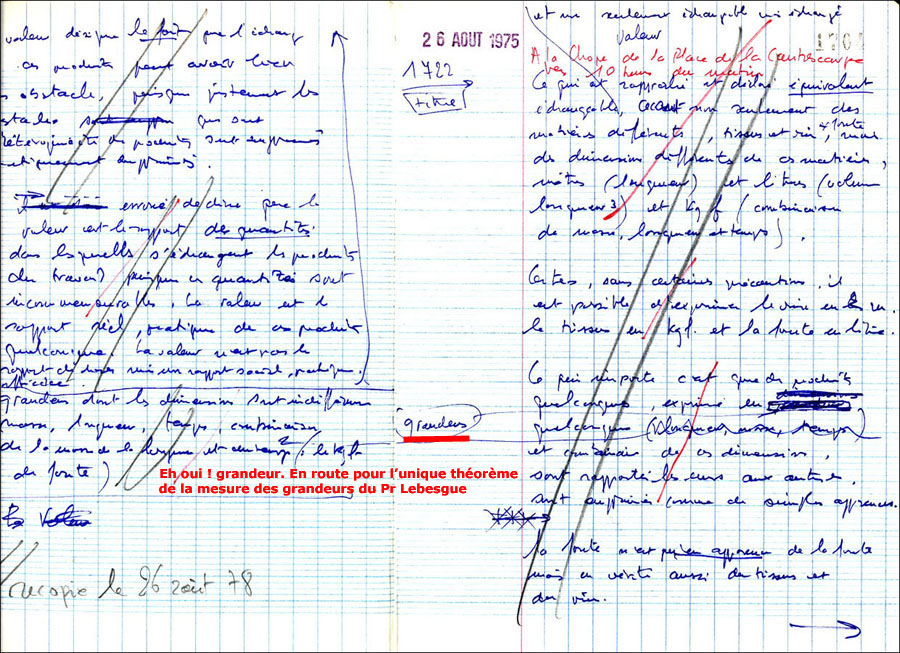 valeur désigne le fait que l'échange
ces produits peut avoir lieu
obstacle, puisque justement les
que sont
des produits sont supprimés
pratiquement supprimés.
erroné de dire que la
valeur est le rapport des quantités
dans lesquelles s'échangent les produits
du travail puisque ces quantités sont
incommensurables. La valeur est le
rapport réel, pratique de ces produits
quelconques. La valeur n'est pas le
rapport de choses mais un rapport social, pratique.
grandeurs dont les dimensions sont indifférentes
masse, longueur, temps, combinaison
de la masse de la longueur et du temps 2 : le kgf
de fonte)
recopié le 26 août 78
26 AOUT 1975
1722
titre
grandeurs
Eh oui ! grandeur. En route pour l'unique théorème
de la mesure des grandeurs du Pr Lebesgue
et non seulement échangeable mais échangé
valeur
A la Chope de la Place de la Contrescarpe
vers 10 heures du matin
Ce qui est rapproché et déclaré équivalent
échangeable, ce sont non seulement des
matières différentes, tissus et vin, & fonte, mais
des dimensions différentes de ces matières,
mètres (longueur) et litres (volume
longueur 3) et kgf (combinaison
de masse, longueur et temps).
Certes, sans certaines précautions, il
est possible d'exprimer le vin en
le tissus en kgf. et la fonte en litre.
Ce peu importe c'est que des produits
quelconques, exprimés en
quelconques (longueur, masse, temps)
et combinaison de ces dimensions,
sont rapportés les uns aux autres,
sont supprimées comme de simples apparences.
la fonte n'est qu'en apparence de la fonte
mais en vérité aussi du tissus et
du vin.